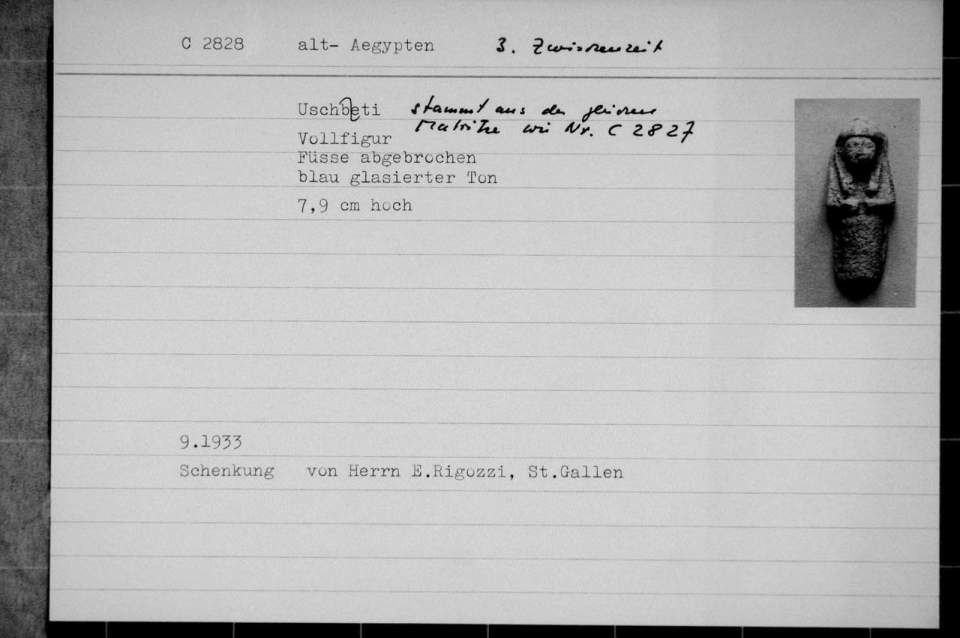 C 2828 alt- Aegypten 3. Zwischenzeit
Uschbeti stammt aus der gleichen
Matritze wie Nr. C 2827
Vollfigur
Füsse abgebrochen
blau glasierter Ton
7,9 cm hoch
9.1933
Schenkung von Herrn E.Rigozzi, St.Gallen